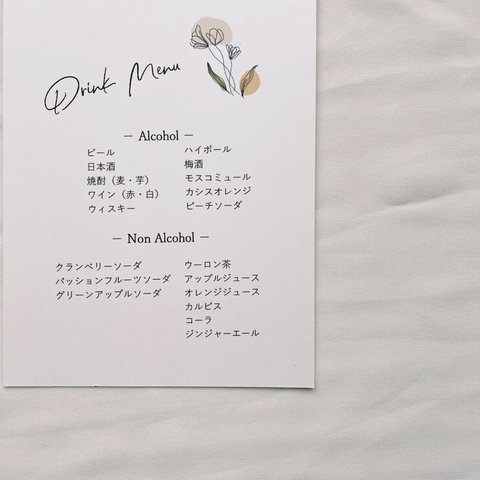 Drink Menu
— Alcohol —
ビール
日本酒
焼酎（麦・芋）
ワイン（赤・白）
ウィスキー
ハイボール
梅酒
モスコミュール
カシスオレンジ
ピーチソーダ
— Non Alcohol —
クランベリーソーダ
パッションフルーツソーダ
グリーンアップルソーダ
ウーロン茶
アップルジュース
オレンジジュース
カルピス
コーラ
ジンジャーエール